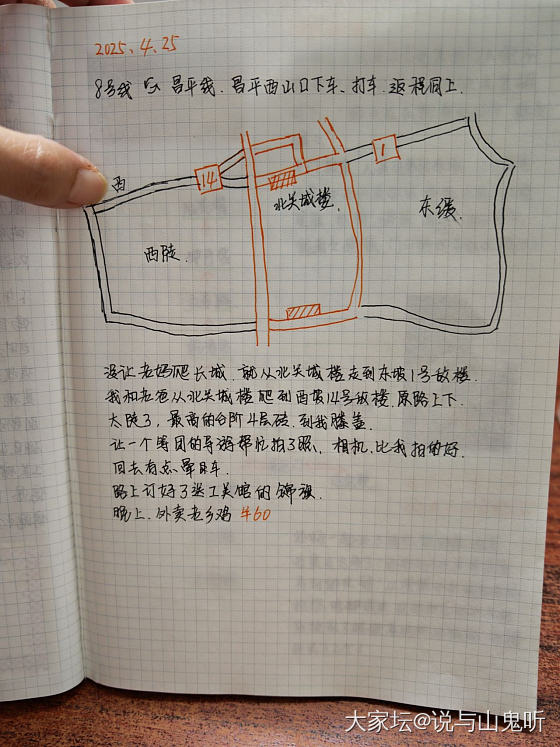 2025.4.25
8号线 与 昌平线. 昌平西山口下车、打车. 返程同上.
西
14
1
北关城楼.
东缓.
西陡.
没让老妈爬长城. 就从北关城楼走到东坡1号敌楼.
我和老爸从北关城楼爬到西坡14号敌楼. 原路上下.
太陡了, 最高的台阶4层砖. 到我膝盖.
让一个粤团的导游帮忙拍了照, 相机. 比我拍的好.
回去有点晕车.
路上订好了送工美馆的锦旗.
晚上. 外卖老乡鸡 ¥60
大家坛@说与山鬼听